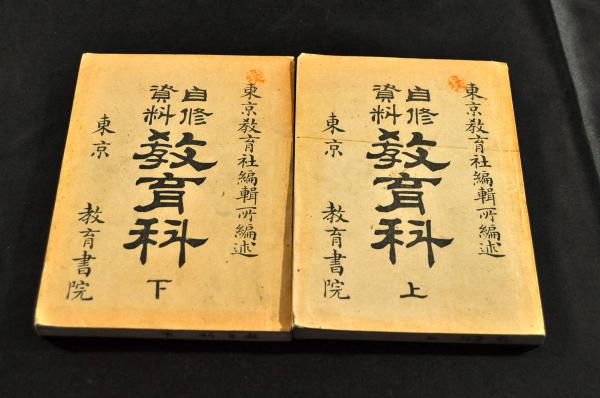 東京教育社編輯所編述
自修
資料
教育科
上
東京 教育書院
東京教育社編輯所編述
自修
資料
教育科
下
東京 教育書院